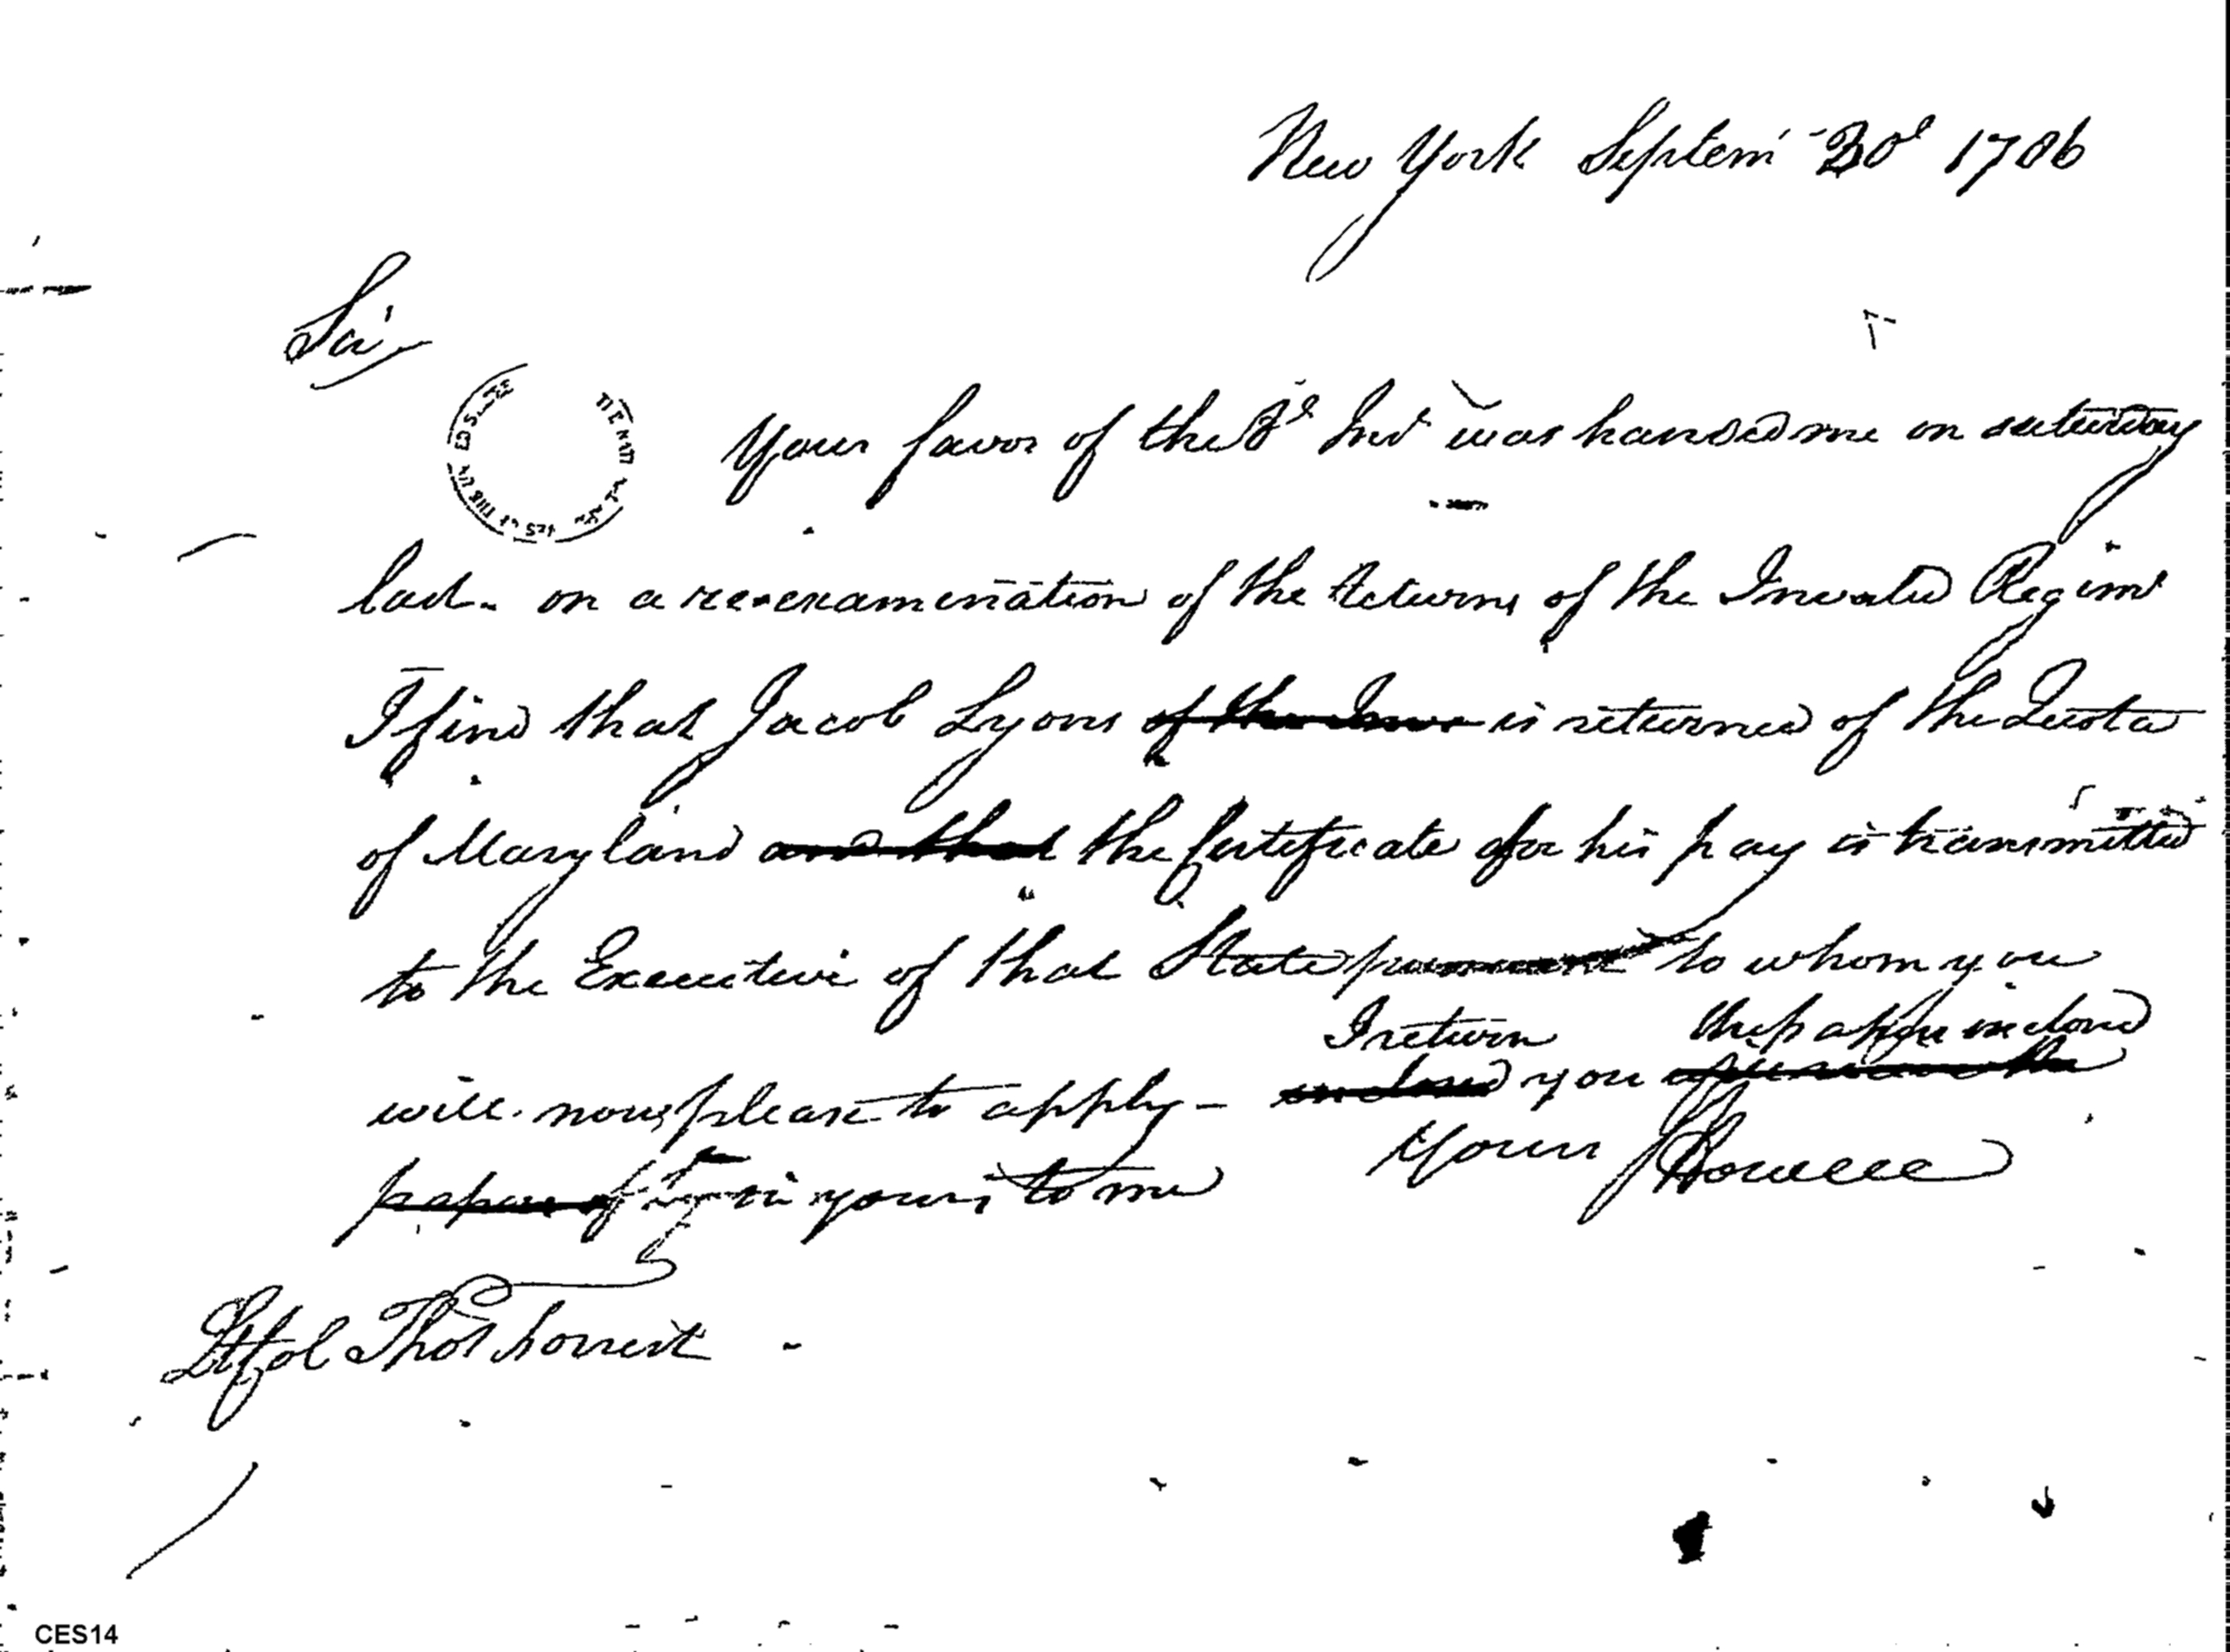 New York Septem 30 1786
Sir
Your favor of the Inst was handed me on saturday
last. on a re-examination of the Returns of the Invalid Regimt
I find that Jacob Lyons of the Inva is returned of the Quota
of Maryland and that the Certificate for his pay is transmitted
to the Executive of that State to whom you
I return the paper inclosed
will now please to apply – inclosed you
papers of in yours to me Yours JHowell
Lt Col Thos Forrest
CES14